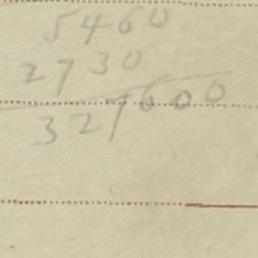 5460
2730
327600